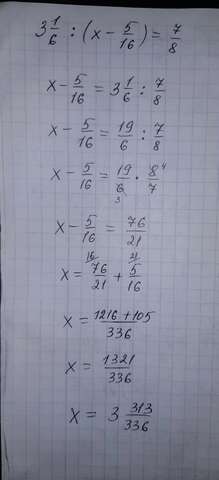 3 1/6 : (x - 5/16) = 7/8
x - 5/16 = 3 1/6 : 7/8
x - 5/16 = 19/6 : 7/8
x - 5/16 = 19/6 3 · 8 4/7
x - 5/16 = 76/21
x = 16 76/21 + 21 5/16
x = 1216 + 105/336
x = 1321/336
x = 3 313/336